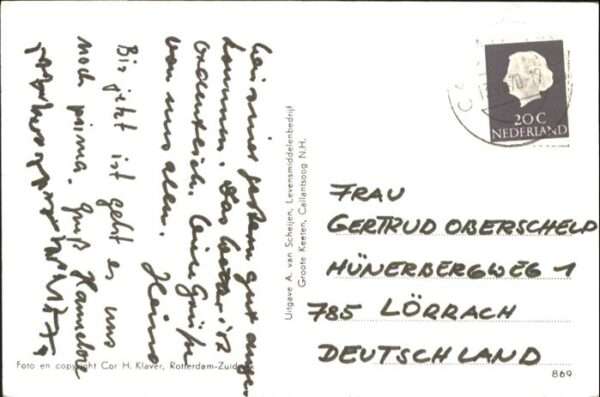 Wir sind gestern gut ange-
kommen. Das Wetter ist
ordentlich. Viele Grüße
von uns allen.
Bis jetzt ist geht es uns
noch prima. Gruß Hannelore
Foto en copyright Cor H. Klaver, Rotterdam-Zuid
Uitgave A. van Scheijen, Levensmiddelenbedrijf
Groote Keeten, Callantsoog N.H.
20 C
NEDERLAND
FRAU
GERTRUD OBERSCHELD
HÜNERBERGWEG 1
785 LÖRRACH
DEUTSCHLAND
869